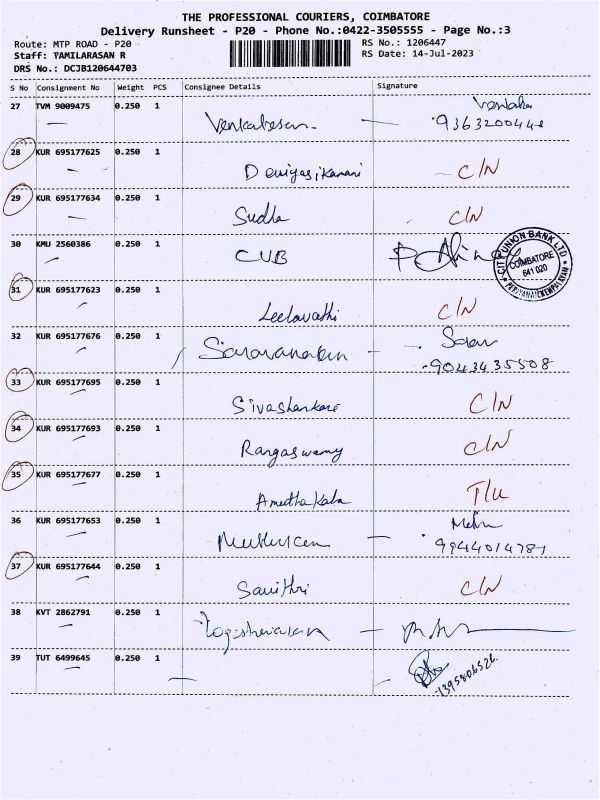 THE PROFESSIONAL COURIERS, COIMBATORE
Delivery Runsheet - P20 - Phone No.:0422-3505555 - Page No.:3
Route: MTP ROAD - P20
RS No.: 1206447
Staff: TAMILARASAN R
RS Date: 14-Jul-2023
DRS No.: DCJB120644703
S No Consignment No Weight PCS Consignee Details Signature
27 TVM 9009475 0.250 1 Venkatesan
28 KUR 695177625 0.250 1 C/N
29 KUR 695177634 0.250 1 Sudha C/N
30 KMU 2560386 0.250 1 CUB
CITY UNION BANK LTD
COIMBATORE
641 020
31 KUR 695177623 0.250 1 Leelavathi C/N
32 KUR 695177676 0.250 1
9043435508
33 KUR 695177695 0.250 1 Sivashankari C/N
34 KUR 695177693 0.250 1 Rangaswamy C/N
35 KUR 695177677 0.250 1 Amutha Kala
36 KUR 695177653 0.250 1
37 KUR 695177644 0.250 1 Savithri C/N
38 KVT 2862791 0.250 1
39 TUT 6499645 0.250 1